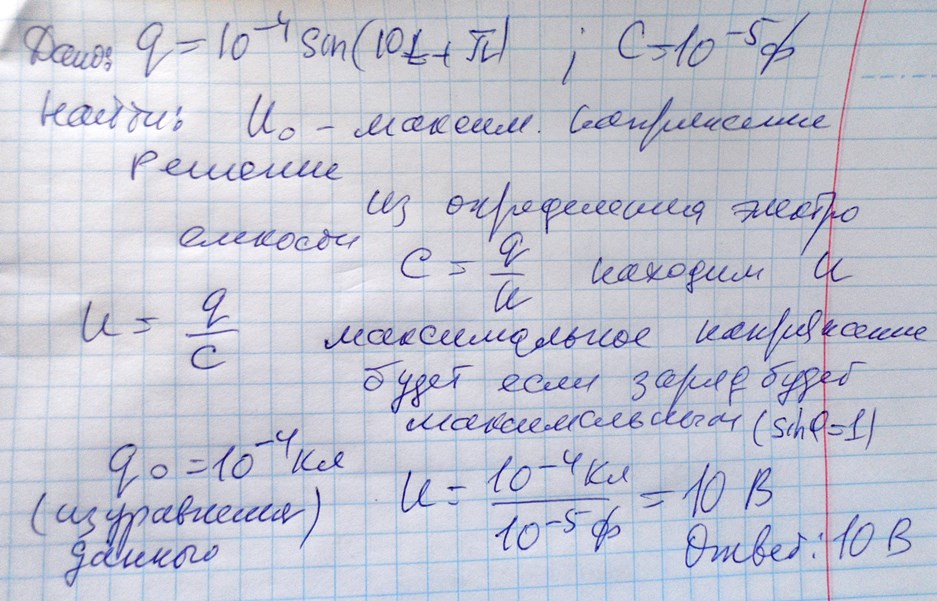 Дано: q = 10⁻⁴ sin(10t + π) ; C = 10⁻⁵ ф
Найти: U₀ - максим. напряжение
Решение
из определения электро
емкости C = q/u находим u
u = q/C максимальное напряжение
будет если заряд будет
максимальным (sinφ=1)
q₀ = 10⁻⁴ Кл
(из уравнения данного) u = 10⁻⁴ Кл / 10⁻⁵ ф = 10 В
Ответ: 10 В